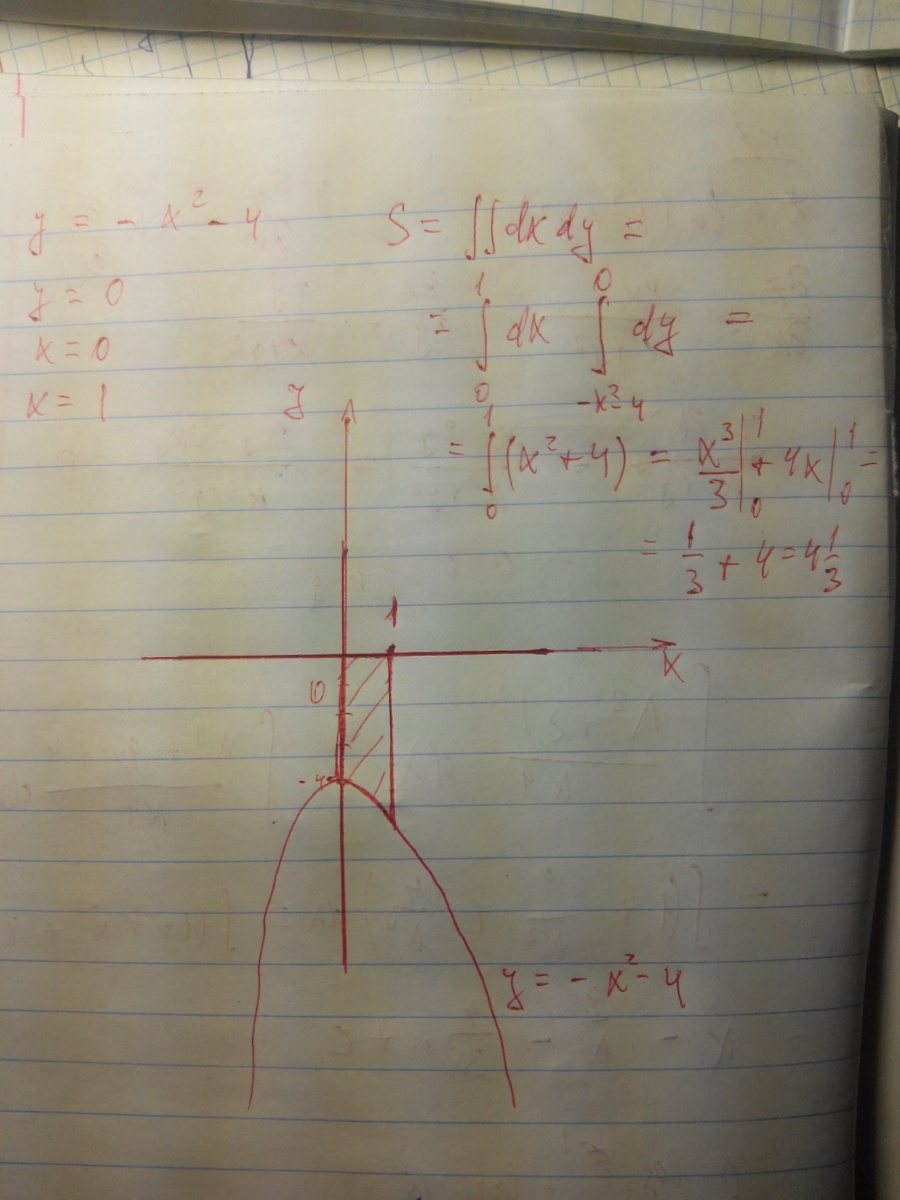 y = - x² - 4
y = 0
x = 0
x = 1
S = ∬ dx dy =
= ∫₀¹ dx ∫₋ₓ²₋₄⁰ dy =
= ∫₀¹ (x² + 4) = x³/3 |₀¹ + 4x |₀¹ =
= 1/3 + 4 = 4 1/3
y
1
x
0
-4
y = - x² - 4